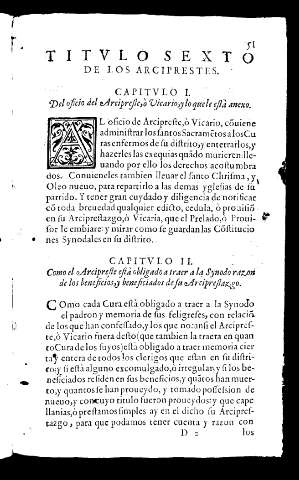 51
TITVLO SEXTO
DE LOS ARCIPRESTES.
CAPITVLO I.
Del oficio del Arcipreste, ò Vicario, y lo que le està anexo.
AL oficio de Arcipreste, ò Vicario, cõuiene
administrar los santos Sacramẽtos a los Cu
ras enfermos de su distrito, y enterrarlos, y
hazerles las exequias quãdo murieren lle-
uando por ello los derechos acostumbra
dos. Convieneles tambien lleuar el santo Chrisma, y
Oleo nueuo, para repartirlo a las demas yglesias de su
partido. Y tener gran cuydado y diligencia de notificar
cõ toda breuedad qualquier edicto, cedula, ò prouisiõ
en su Arciprestazgo, ò Vicaria, que el Prelado, ò Proui-
sor le embiare: y mirar como se guardan las Cõstitucio
nes Synodales en su distrito.
CAPITVLO II.
Como el Arcipreste està obligado a traer a la Synodo razon
de los beneficios, y beneficiados de su Arciprestazgo.
COmo cada Cura està obligado a traer a la Synodo
el padron y memoria de sus feligreses, con relaciõ
de los que han confessado, y los que no: ansi el Arcipres-
te, ò Vicario fuera desto (que tambien la traera en quan
to Cura de los suyos) està obligado a traer memoria cier
ta y entera de todos los clerigos que estan en su distri-
to, y si està alguno excomulgado, ò irregular, y si los be-
neficiados residen en sus beneficios, y quãtos han muer-
to, y quantos se han proueydo, y tomado possession de
nueuo, y con cuyo titulo fueron proueydos: y que cape
llanias, ò prestamos simples ay en el dicho su Arcipres-
tazgo, para que podamos tener cuenta y razon con
D 2 los